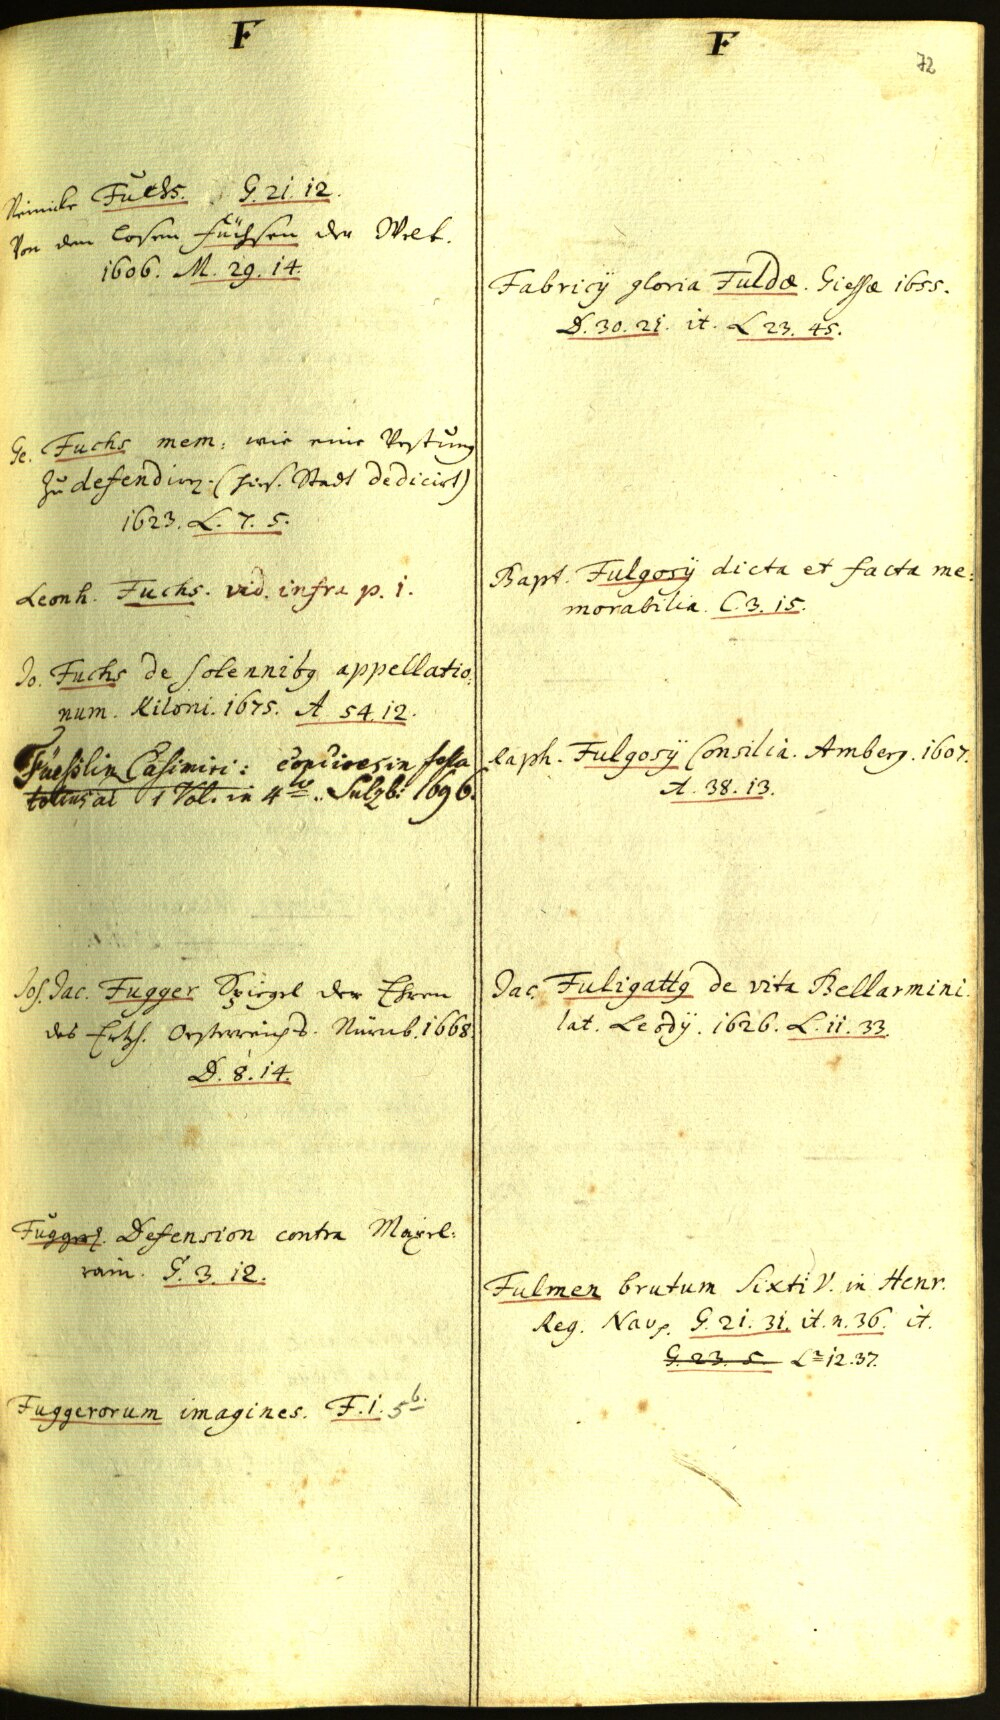 F
Reinicke Fuchs. G. 21. 12.
Von den losen Füchsen der Welt.
1606. M. 29. 14.
Ge. Fuchs mem: wie eine Vestung
zu defendirn. (hies. Stadt dedicirt)
1623. L. 7. 5.
Leonh. Fuchs. vid. infra p. 1.
Jo. Fuchs de solennibq appellatio:
num. Kiloni. 1675. A 54. 12.
Füesslin Casimiri: conciones in festa
totius ai 1 Vol. in 4to. Sulzb: 1696.
Joh. Jac. Fugger Spiegel der Ehren
des Ertzh. Oesterreichs. Nürnb. 1668
D. 8. 14.
Fugger. Defension contra Maxel:
rain. G. 3. 12.
Fuggerorum imagines. F. 1. 5b.
F
72
Fabricÿ gloria Fuldæ. Giessæ 1655.
D. 30. 21. it. L 23. 45.
Bapt. Fulgosÿ dicta et facta me:
morabilia. C. 3. 15.
Raph. Fulgosÿ Consilia. Amberg. 1607.
A. 38. 13.
Jac. Fuligattq de vita Bellarmini.
lat. Leodÿ. 1626. L. 11. 33.
Fulmen brutum Sixti V. in Henr.
Reg. Nav. G. 21. 31. it. n. 36. it.
G. 23. 5. L 12. 37.